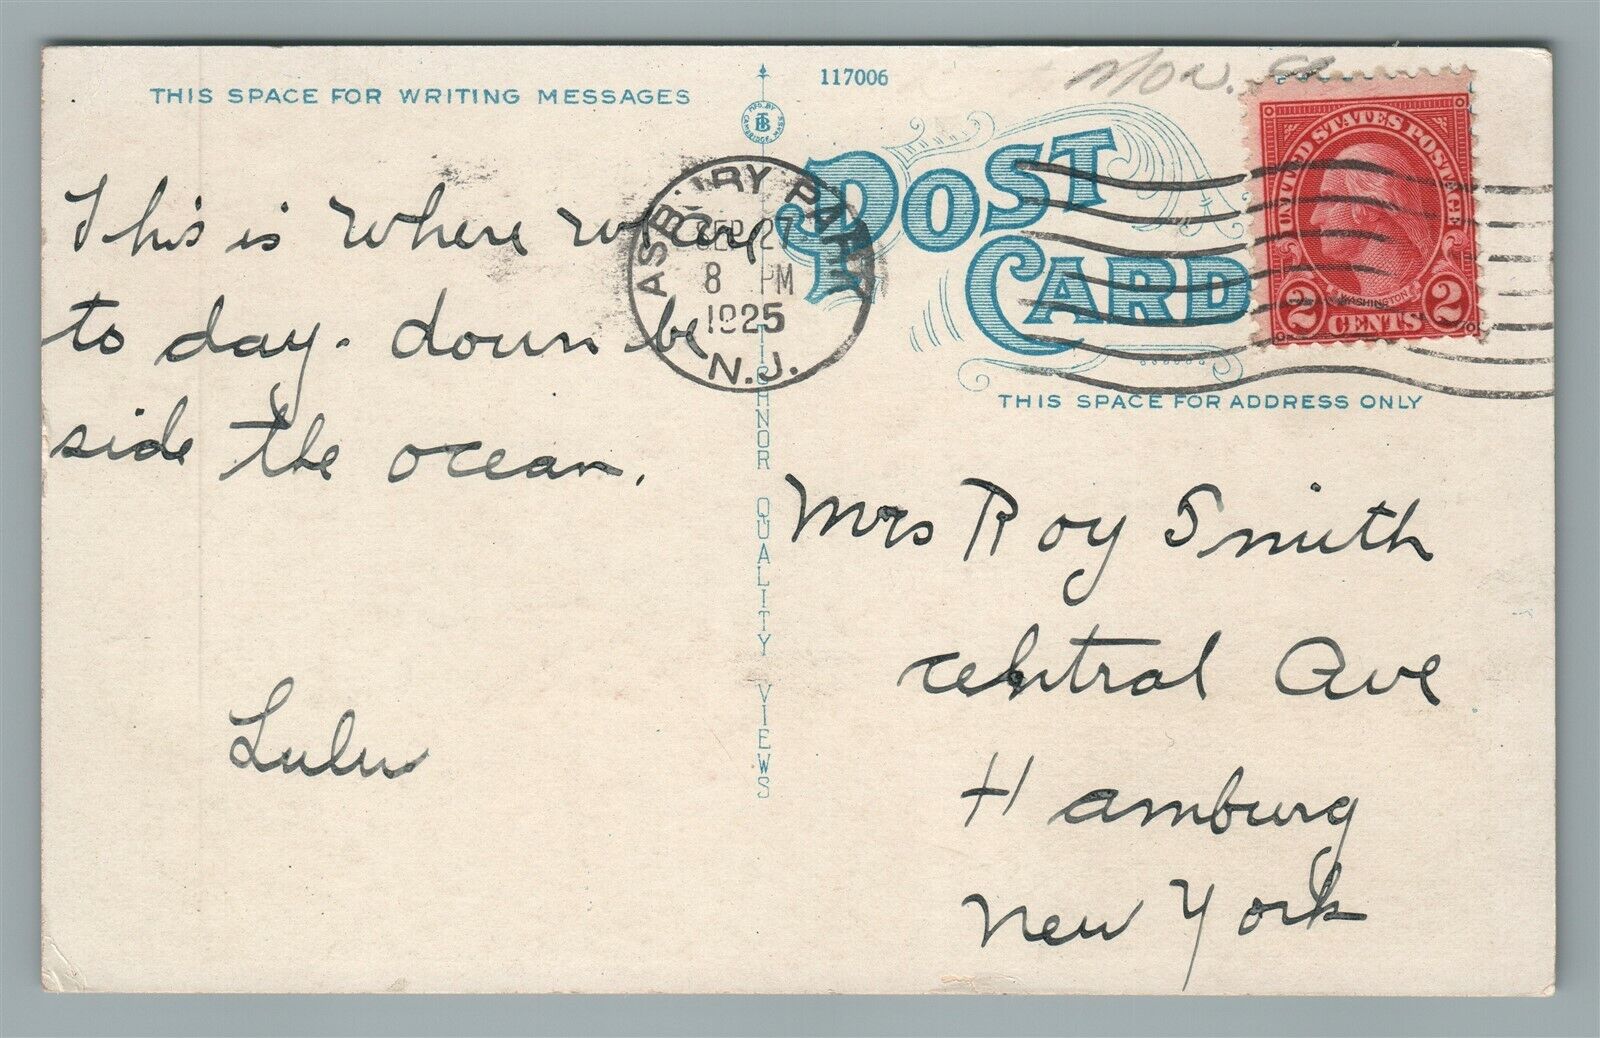 THIS SPACE FOR WRITING MESSAGES
This is where we are
to day. down be
side the ocean.
Lulu
MFD. BY
TB
CAMBRIDGE, MASS.
TICHNOR QUALITY VIEWS
117006
Nov.
POST
CARD
ASBURY PARK
SEP 27
8 PM
1925
N.J.
UNITED STATES POSTAGE
WASHINGTON
2 CENTS 2
THIS SPACE FOR ADDRESS ONLY
Mrs Roy Smith
central Ave
Hamburg
New York